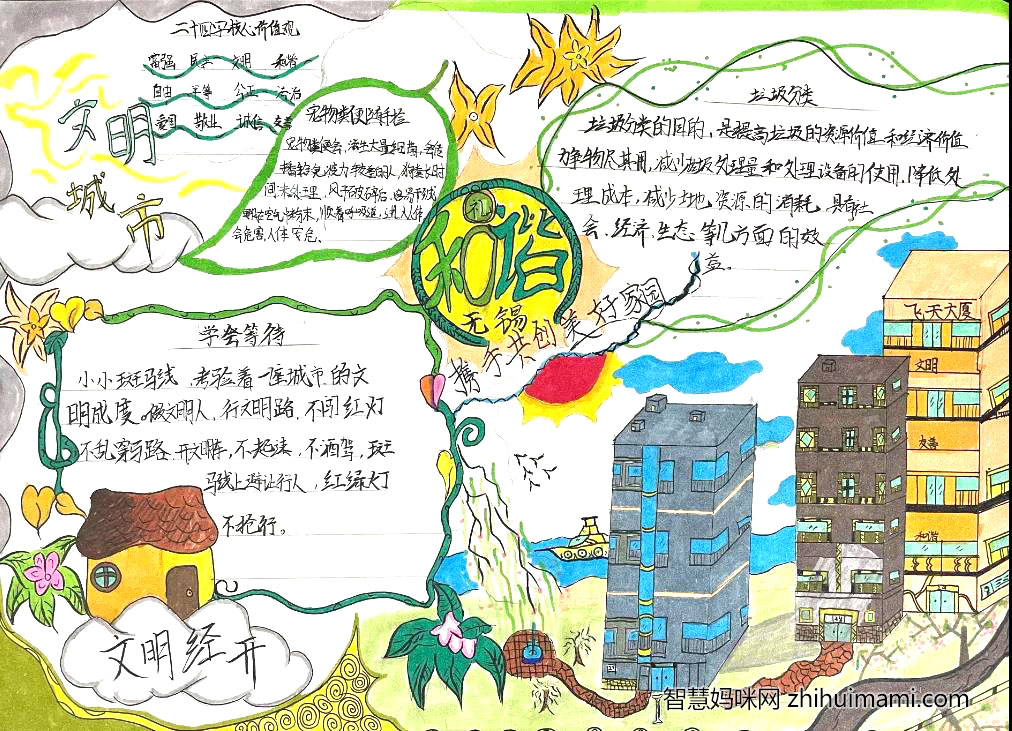 二十四字核心价值观
富强 民主 文明 和谐
自由 平等 公正 法治
爱国 敬业 诚信 友善
文明
城市
宠物粪便
间未处理,风干破碎后
会危害人体
礼
和谐
无锡
携手共创美好家园
垃圾分类
垃圾分类的目的,是提高垃圾的资源价值和经济价值
力争物尽其用,减少垃圾处理量和处理设备的使用.降低处
理成本,减少土地资源的消耗,具有社
会、经济、生态等几方面的效
益。
学会等待
小小斑马线,考验着一座城市的文
明成度。做文明人,行文明路,不闯红灯
不乱穿马路,不超速,不酒驾,斑
马线上避让行人,红绿灯
不抢行。
文明经开
飞天大厦
文明
友善
和谐
智慧妈咪网 zhihuimami.com